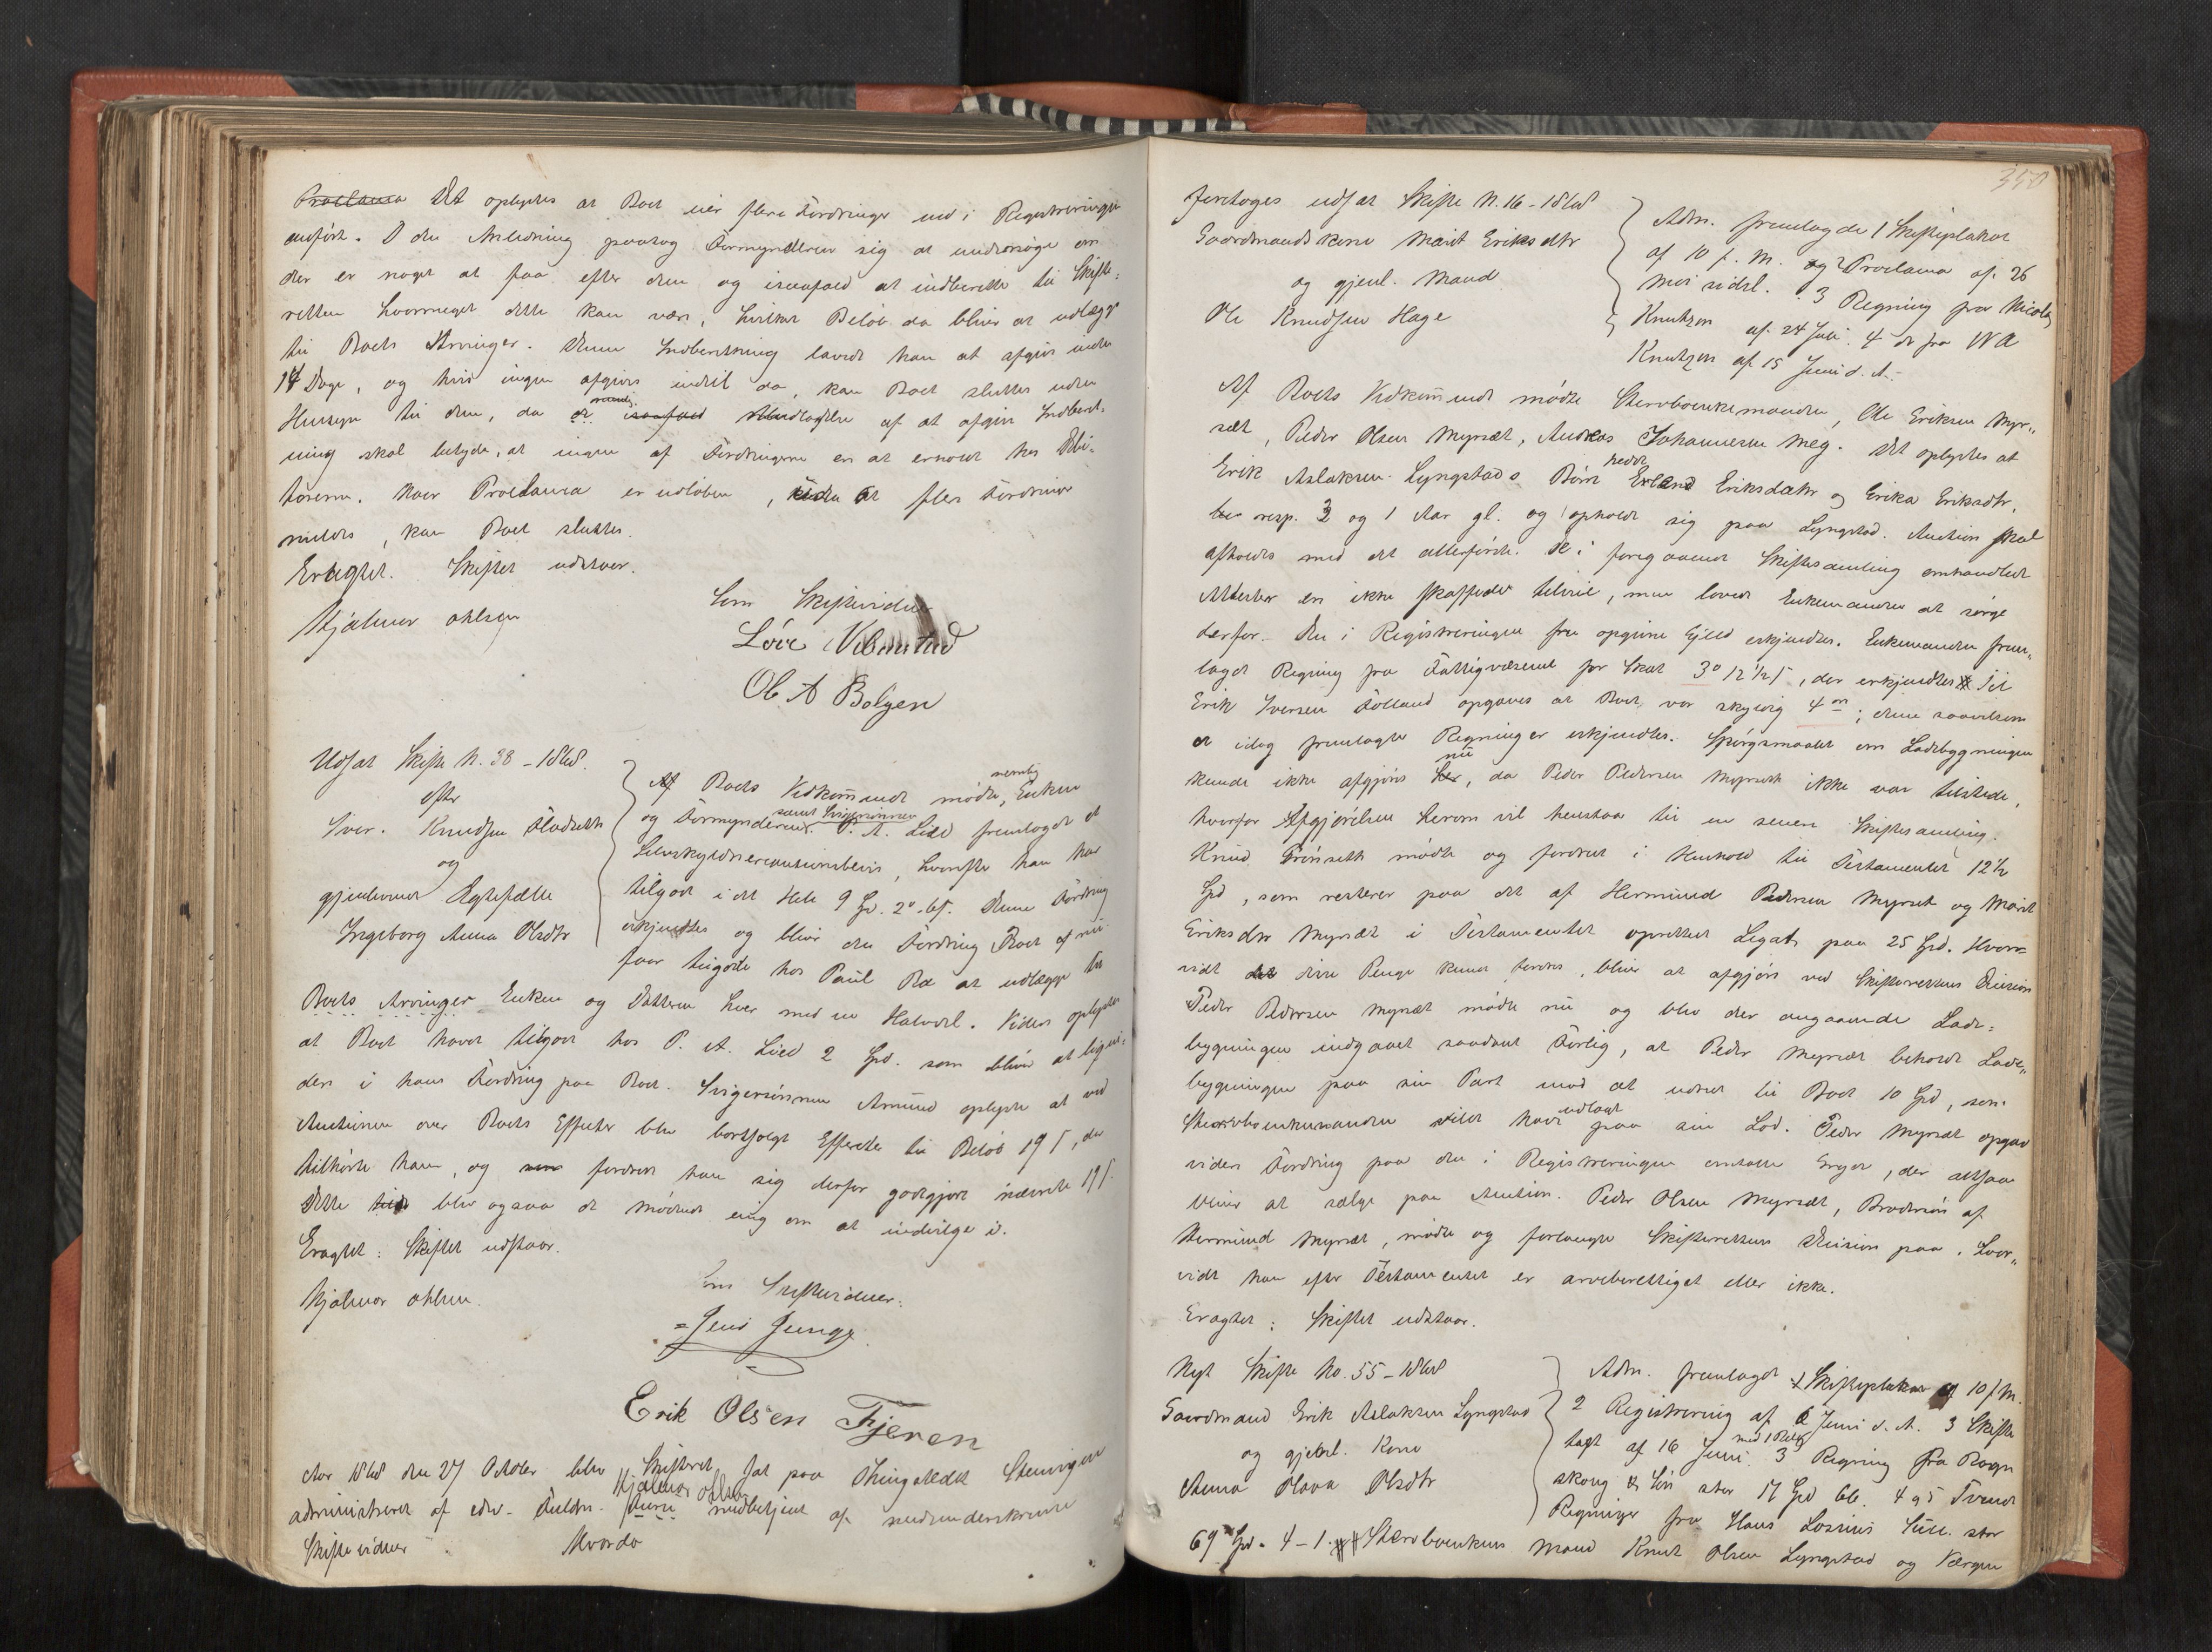 Proclama Det oplystes at Boet eier flere Fordringer end i Registreringen
anført. I den Anledning paatog Formynderen sig at undersøge om
der er noget at faa efter dem og isaafald at indberette til Skifte-
retten hvormeget dette kan være, hvilket Beløb da bliver at udlægge
til Boets Arvinger. Denne Indberetning lovede han at afgive inden
14 Dage, og hvis ingen afgives indtil da, kan Boet sluttes uden
Hensyn til dem, da isaafald Undladelse af at afgive Indberet-
ning skal betyde, at ingen af Fordringerne er at erholde hos Debi-
torerne. Naar Proclama er udløben, uden at flere Fordringer
meldes, kan Boet sluttes.
Eragtet. Skiftet udstaar.
Hjalmar Ohlsen
Som Skiftevidner
Ole A Bolgen
Udsat Skifte N. 38 - 1868.
efter
Iver Knudsen
og
gjenlevende Ægtefælle
Ingeborg Anna Olsdtr
Af Boets Vedkommende mødte nemlig Enken
og Formynderen samt Svigersønnen P. A. Lied fremlagde et
Selvskyldnercautionsbevis, hvorefter han har
tilgode i det Hele 9 Spd. 2 Denne Fordring
erkjendtes og bliver den Fordring Boet
faar tilgode hos Paul at udlægge til
Boets Arvinger Enken og Datteren hver med en Halvdel. Videre oplystes
at Boet havde tilgode hos P. A. Lied 2 Spd. som bliver at
i hans Fordring paa Boet. Svigersønnen Amund oplyste at ved
Auctionen over Boets Effecter blev bortsolgt Effecter til Beløb 19 ß, der
tilhørte ham, og fordrede han sig derfor godtgjort nævnte 19 ß.
Dette blev ogsaa de Mødende enig om at indvilge i.
Eragtet: Skiftet udstaar.
Hjalmar Ohlsen.
Som Skiftevidner:
Jens
Erik Olsen Fjeren
Aar 1868 den 27 October blev Skifteret sat paa Thingstedet
administreret af edsv. Fuldm. Hjalmar Ohlsen medbetjent af medunderskrevne
Skiftevidner Hvorda
350
foretoges udsat Skifte N. 16 - 1868
Gaardmandskone Marit Eriksdtr
og gjenl. Mand
Ole Knudsen Hage
Adm. fremlagde 1 Skifteplakat
af 10 f. M. og 2 Proclama af 26
Mai sidstl. 3 Regning fra Nicolay
Knutzon af 24 Juli. 4 do fra W A
Knutzon af 15 Juni d. A.
Af Boets Vedkommende mødte Sterboenkemanden, Ole Eriksen Myr-
sæt, Peder Olsen Myrsæt, Andreas Johannesen Meg. Det oplystes at
Erik Aslaksen Lyngstads Børn hedde Eriksdatr og Erika Eriksdtr,
resp. 3 og 1 Aar gl. og opholde sig paa Lyngstad. Auction skal
afholdes med det allerførste. De i foregaaende Skiftesamling omhandlede
Attester er ikke skaffede tilveie, men lovede Enkemanden at sørge
derfor. Den i Registreringen opgivne Gjeld erkjendtes. Enkemanden frem-
lagde Regning fra Fattigvæsenet for Skat 3 12½ ß, der erkjendtes Til
Erik Iversen Folland opgaves at Boet var skyldig 4; denne saavelsom
de idag fremlagte Regninger erkjendtes. Spørgsmaalet om Ladebygningen
kunde ikke afgjøres nu, da Peder Pedersen Myrsæt ikke var tilstede,
hvorfor Afgjørelsen herom vil henstaa til en senere Skiftesamling.
Knud mødte og fordrede i Henhold til Testamentet 12½
Spd, som resterer paa det af Hermund Pedersen Myrset og Marit
Eriksdtr Myrsæt i Testamentet oprettede Legat paa 25 Spd. Hvor-
vidt disse Penge kunne fordres, bliver at afgjøre ved Skifterettens Decision
Peder Pedersen Myrsæt mødte nu og blev der angaaende Lade-
bygningen indgaaet saadant Forlig, at Peder Myrsæt beholdt Lade-
bygningen paa sin Part mod at udrede til Boet 10 Spd, som
Sterboenkemanden vilde have udlagt paa sin Lod. Peder Myrsæt opgav
videre Fordring paa den i Registreringen omtalte Gryde, der altsaa
bliver at sælge paa Auction. Peder Olsen Myrsæt, Brodersøn af
Hermund Myrsæt, mødte og forlangte Skifterettens Decision paa, hvor-
vidt han efter Testamentet er arveberettiget eller ikke.
Eragtet: Skiftet udstaar.
Nyt Skifte No. 55 - 1868
Gaardmand Erik Aslaksen Lyngstad
og gjenl. Kone
Anna Olava Olsdtr
Adm. fremlagde 1 Skifteplakat af 10 f. M.
2 Registrering af 6 Juni d. A. 3 Skifte
tagt af 16 Juni med 1 Bilag 3 Regning fra Rogn
skoug & Søn stor 17 Spd 66. 4 & 5 Tvende
Regninger fra Hans Lossius stor
69 Spd. 4 - 1. Sterboenkens Mand Knut Olsen Lyngstad og Værgen